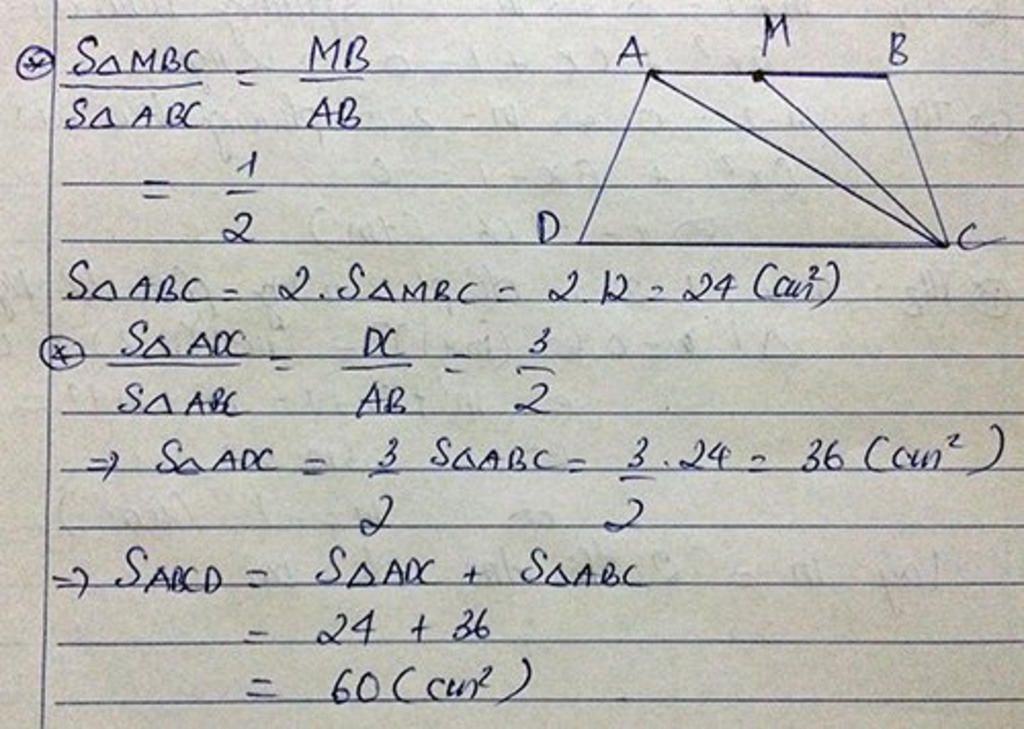 A M B
D C
⊛ S△MBC / S△ABC = MB / AB
= 1 / 2
S△ABC = 2 . S△MBC = 2.12 = 24 (cm²)
⊛ S△ADC / S△ABC = DC / AB = 3 / 2
=> S△ADC = 3 / 2 S△ABC = 3 / 2 . 24 = 36 (cm²)
=> SABCD = S△ADC + S△ABC
= 24 + 36
= 60 (cm²)